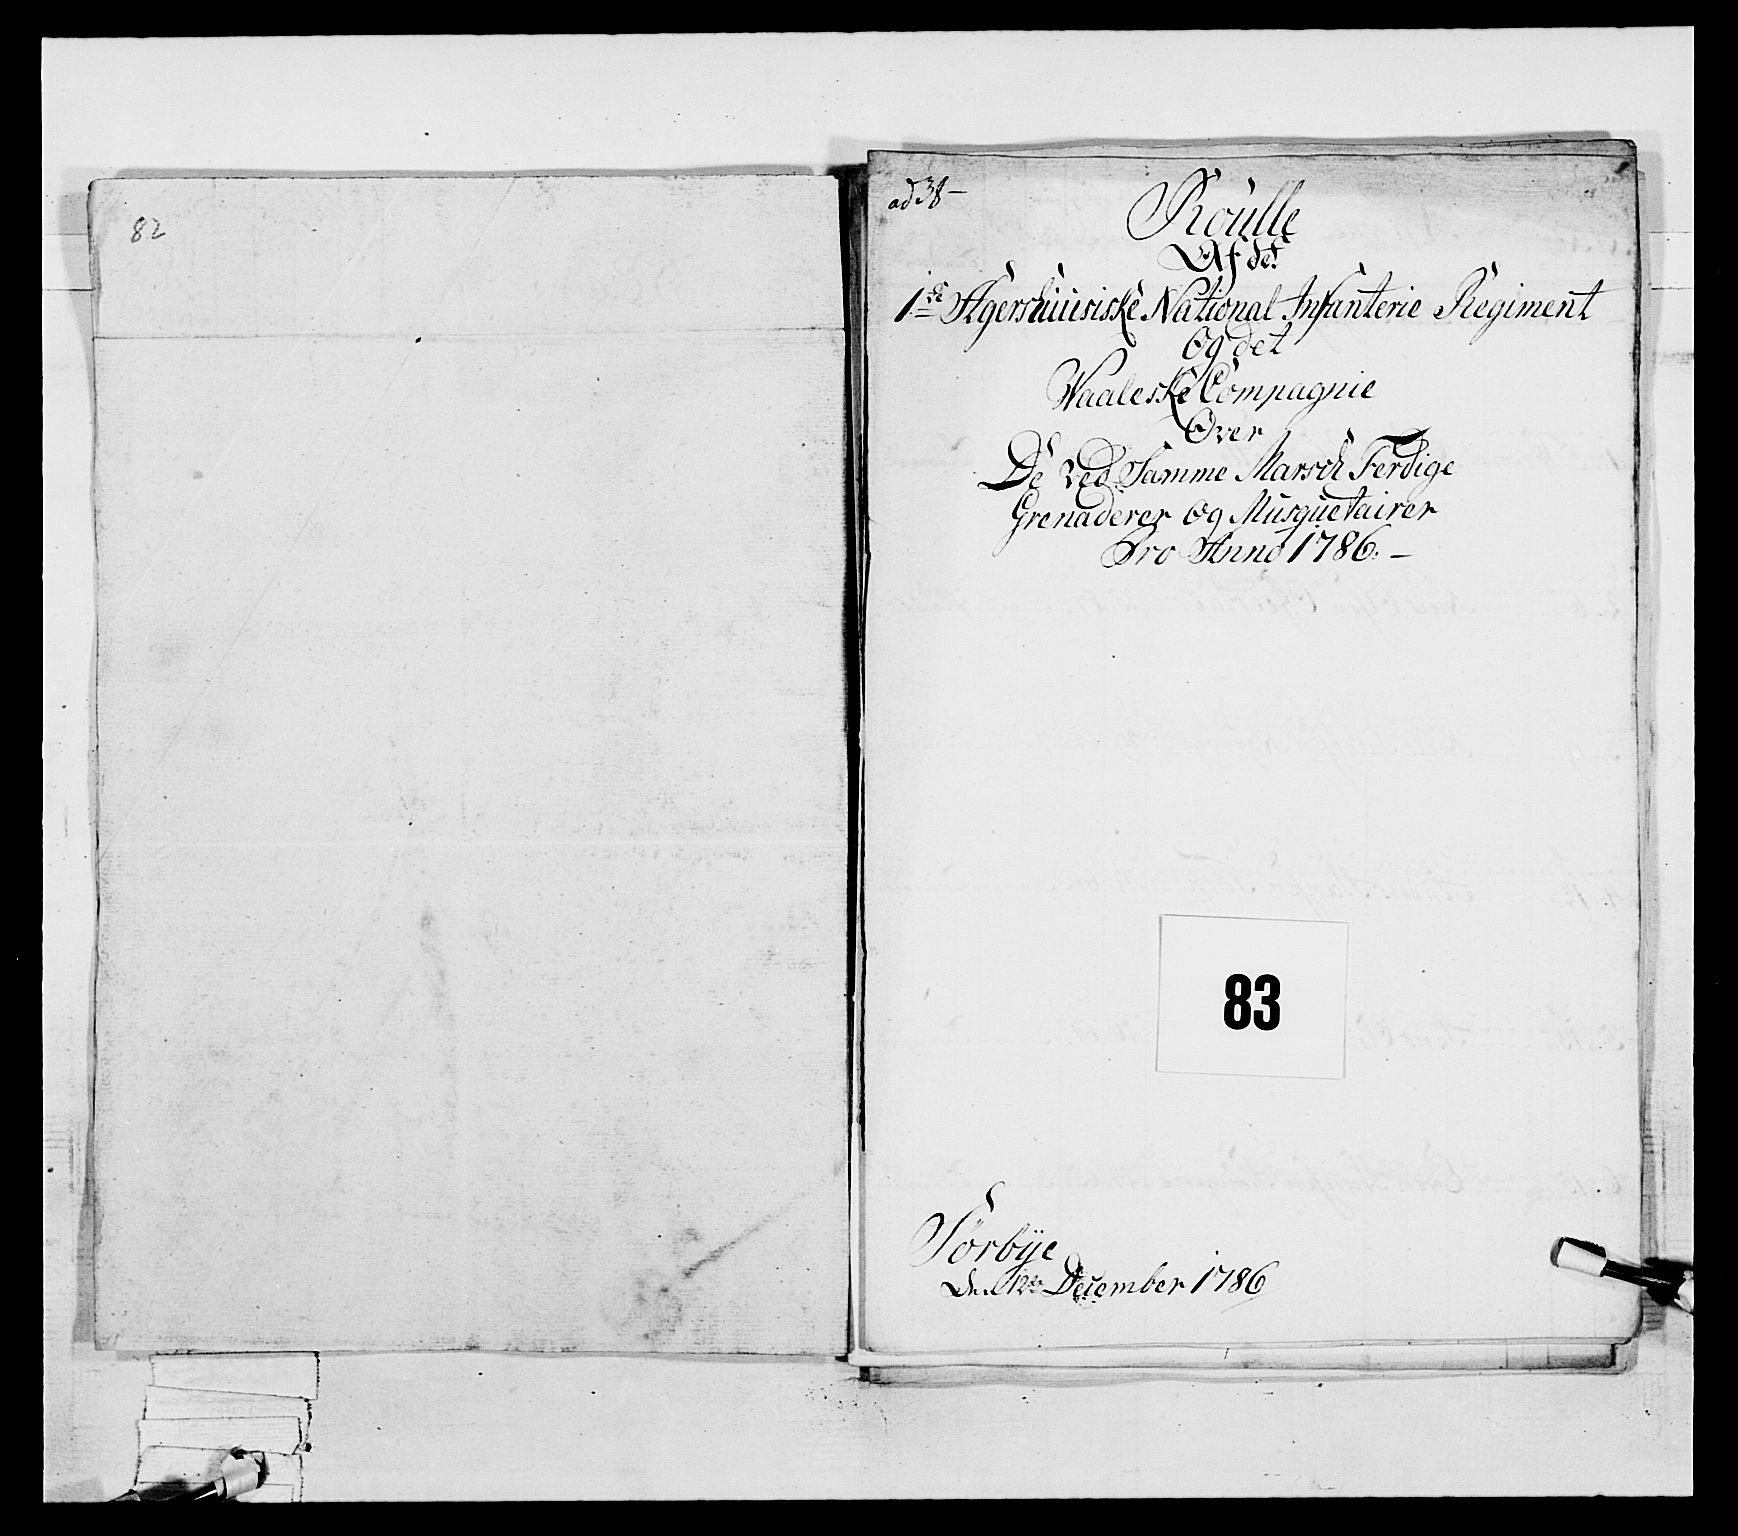 82
ad 38 —
Roulle
Af det
1ste Agershuusiske National Infanterie Regiment
Og det
Waaleske Compagnie
Over
De ved Samme Marsch Ferdige
Grenaderer og Musquetairer
Pro Anno 1786. —
83
Sørbye
Den 12te December 1786